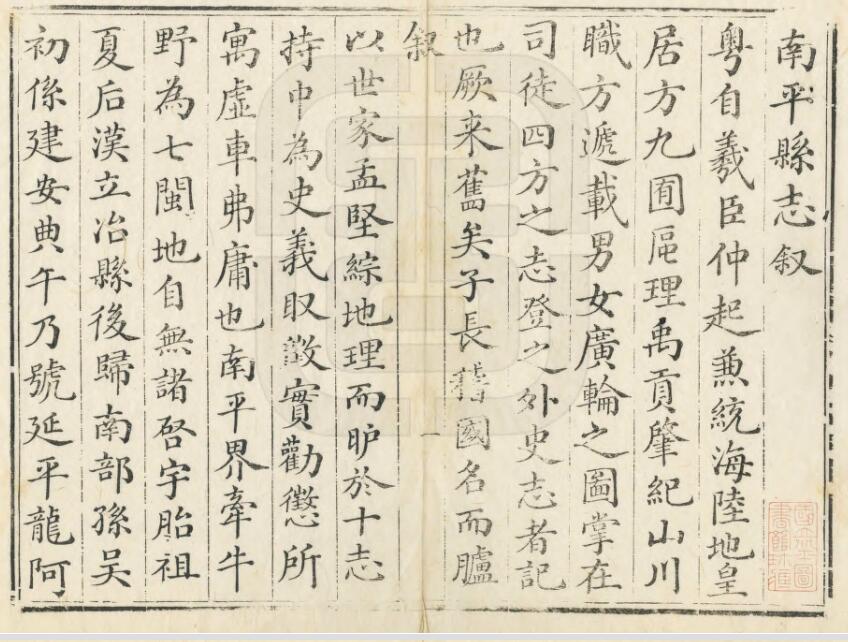 南平縣志叙
粤自羲臣仲起兼統海陸地皇
居方九囿區理禹貢肇紀山川
職方遞載男女廣輪之圖掌在
司徒四方之志登之外史志者記
也厥来舊矣子長國名而臚
叙
一
以世家孟堅綜地理而昈於十志
持中為史義取徵實勸懲所
寓虛車弗庸也南平界牽牛
野為七閩地自無諸啓宇胎祖
夏后漢立冶縣後歸南部孫吳
初係建安典午乃號延平龍阿